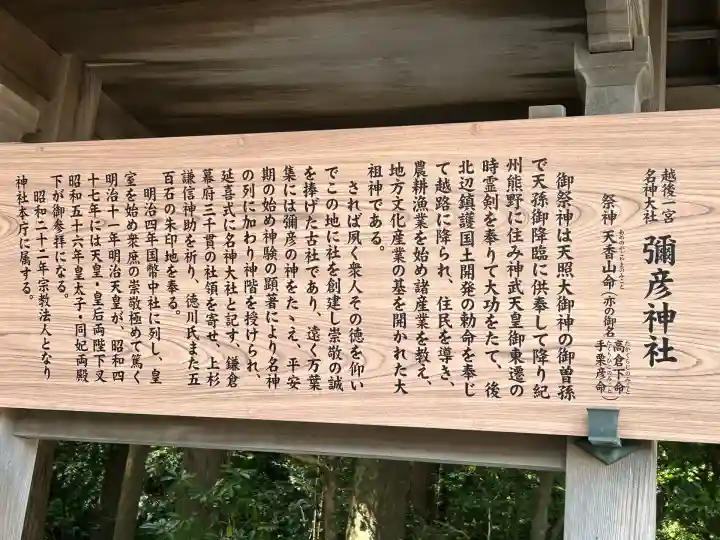 越後一宮
名神大社
彌彦神社
祭神 天香山命(亦の御名 高倉下命
手栗彦命)
御祭神は天照大御神の御曽孫
で天孫御降臨に供奉して降り紀
州熊野に住み神武天皇御東遷の
時霊剣を奉りて大功をたて、後
北辺鎮護国土開発の勅命を奉じ
て越路に降られ、住民を導き、
農耕漁業を始め諸産業を教え、
地方文化産業の基を開かれた大
祖神である。
されば夙く衆人その徳を仰い
でこの地に社を創建し崇敬の誠
を捧げた古社であり、遠く万葉
集には彌彦の神をたゝえ、平安
期の始め神験の顕著により名神
の列に加わり神階を授けられ、
延喜式に名神大社と記す、鎌倉
幕府三千貫の社領を寄せ、上杉
謙信神助を祈り、徳川氏また五
百石の朱印地を奉る。
明治四年国幣中社に列し、皇
室を始め衆庶の崇敬極めて篤く
明治十一年明治天皇が、昭和四
十七年には天皇・皇后両陛下又
昭和五十六年皇太子・同妃両殿
下が御参拝になる。
昭和二十二年宗教法人となり
神社本庁に属する。